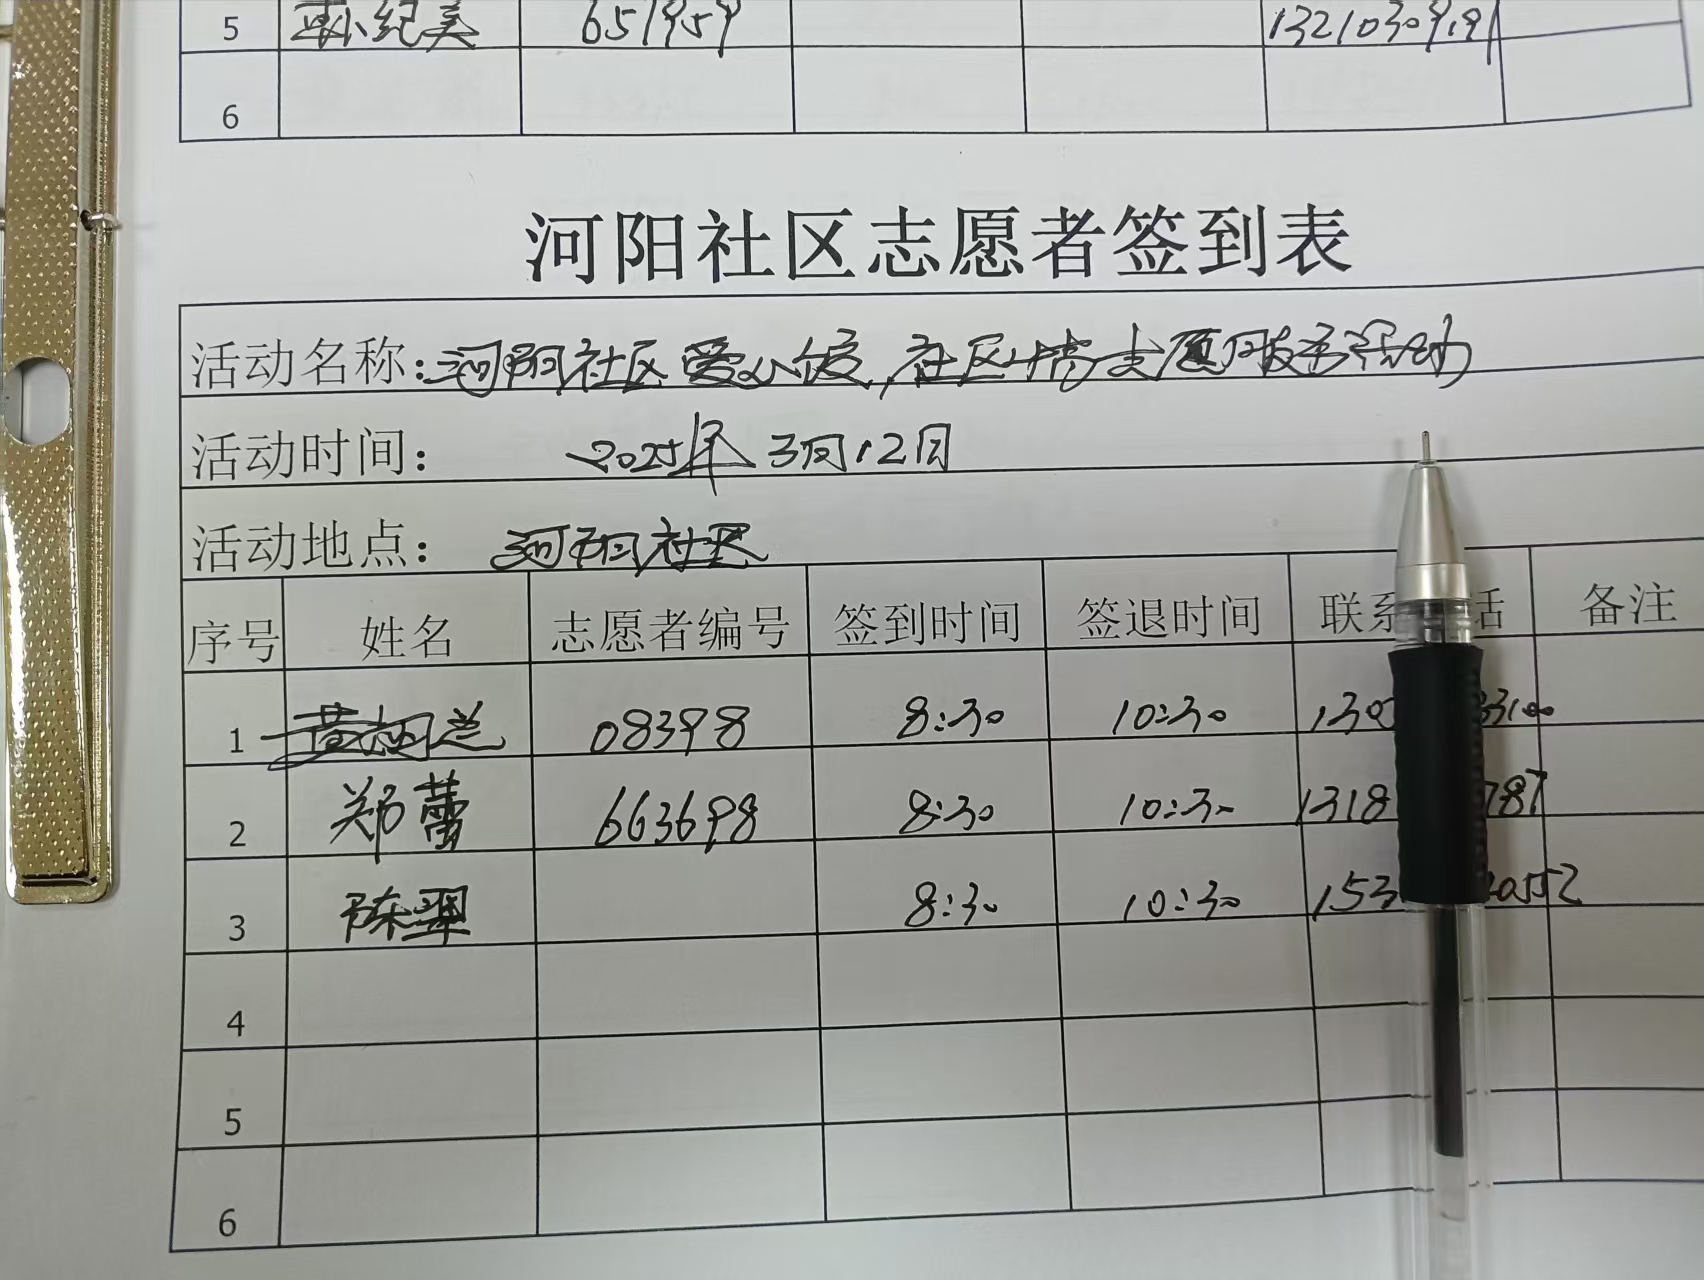 5 孙纪美 651959 1321030919
6
河阳社区志愿者签到表
活动名称: 河阳社区 社区 志愿服务活动
活动时间: 2025年3月12日
活动地点: 河阳社区
序号 姓名 志愿者编号 签到时间 签退时间 联系 话 备注
1 08398 8:30 10:30 130 33100
2 郑蕾 663698 8:30 10:30 1318 787
3 陈翠 8:30 10:30 153 20552
4
5
6